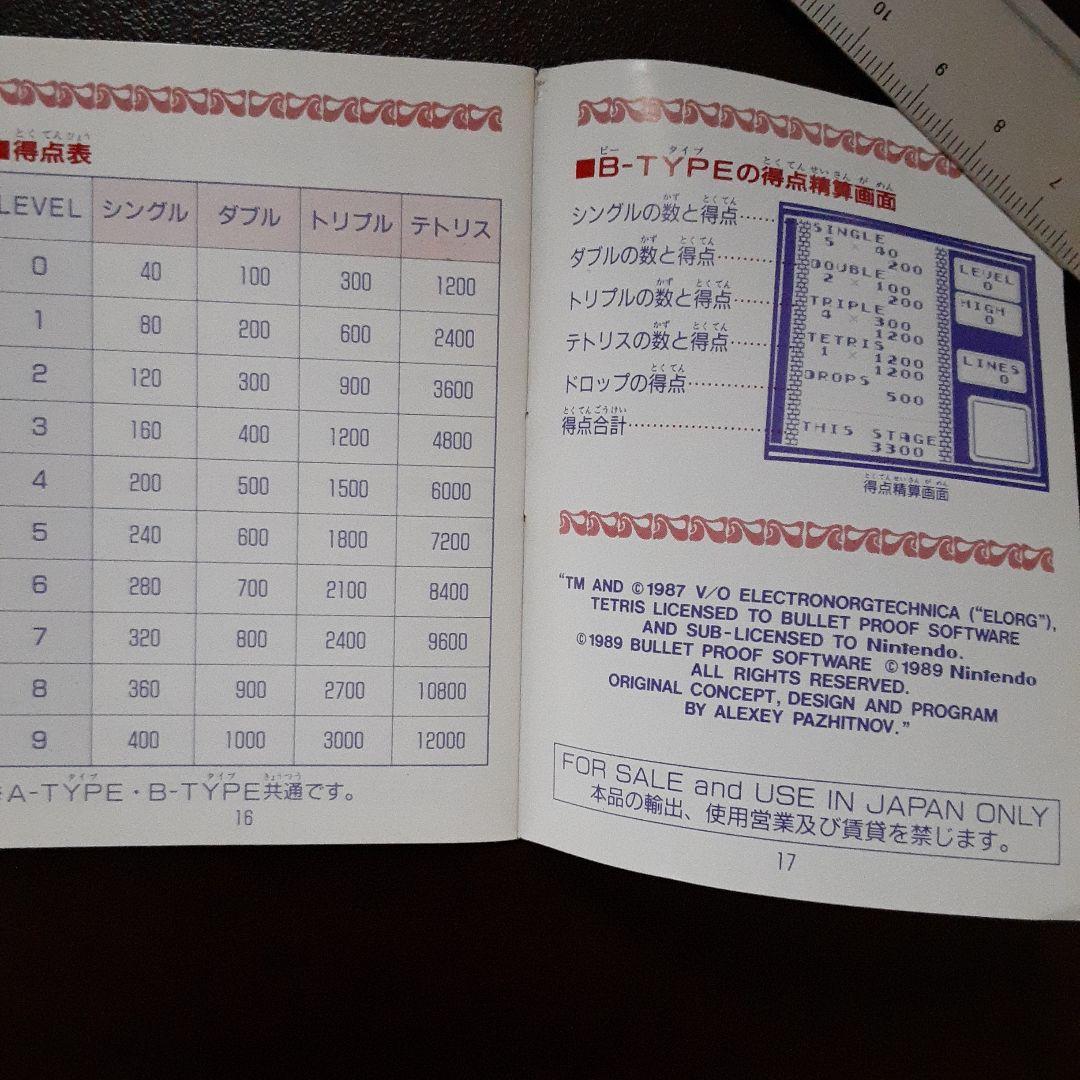 とくてんひょう
■得点表
LEVEL シングル ダブル トリプル テトリス
0 40 100 300 1200
1 80 200 600 2400
2 120 300 900 3600
3 160 400 1200 4800
4 200 500 1500 6000
5 240 600 1800 7200
6 280 700 2100 8400
7 320 800 2400 9600
8 360 900 2700 10800
9 400 1000 3000 12000
タイプ タイプ きょうつう
※A-TYPE・B-TYPE共通です。
16
ビー タイプ とくてんせいさんがめん
■B-TYPEの得点精算画面
かず とくてん
シングルの数と得点……
かず とくてん
ダブルの数と得点……
かず とくてん
トリプルの数と得点……
かず とくてん
テトリスの数と得点……
とくてん
ドロップの得点……
とくてんごうけい
得点合計……
SINGLE
5 × 40
200
DOUBLE
2 × 100
200
TRIPLE
4 × 300
1200
TETRIS
1 × 1200
1200
DROPS
500
THIS STAGE
3300
LEVEL
0
HIGH
0
LINES
0
とくてんせいさんがめん
得点精算画面
“TM AND ©1987 V/O ELECTRONORGTECHNICA (“ELORG”),
TETRIS LICENSED TO BULLET PROOF SOFTWARE
AND SUB-LICENSED TO Nintendo.
©1989 BULLET PROOF SOFTWARE ©1989 Nintendo
ALL RIGHTS RESERVED.
ORIGINAL CONCEPT, DESIGN AND PROGRAM
BY ALEXEY PAZHITNOV.”
FOR SALE and USE IN JAPAN ONLY
本品の輸出、使用営業及び賃貸を禁じます。
17
10
9
8
7